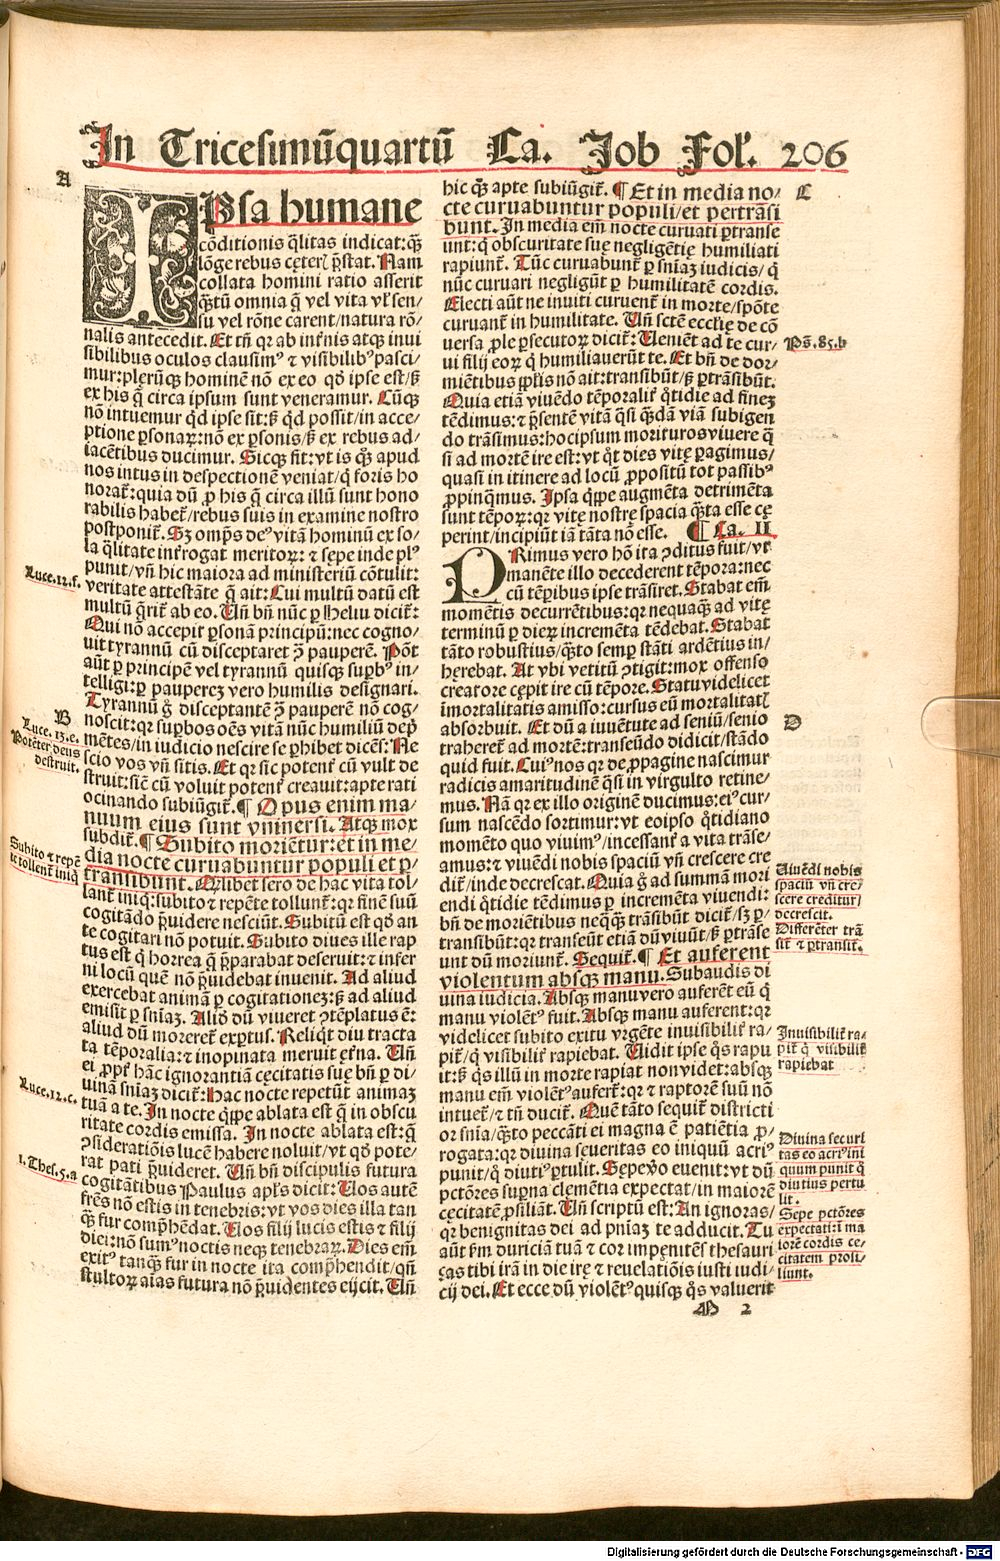 In Tricesimūquartū Ca. Job Fol'. 206
A
IPsa humane
cōditionis q̄litas indicat: q̄ꝫ
lōge rebus cęteꝭ p̄stat. Nam
collata homini ratio asserit
q̄ꝫtū omnia q̄ vel vita vꝉ sen/
su vel rōne carent/natura rō/
nalis antecedit. Et tn̄ qꝛ ab int̄nis atqꝫ inui
sibilibus oculos clausimꝰ ⁊ visibilibꝰ pasci/
mur: plerūqꝫ hominē nō ex eo qḋ ipse est/ꝫ
ex his q̄ circa ipsum sunt veneramur. Cūqꝫ
nō intuemur qḋ ipse sit: ꝫ qḋ possit/in acce/
ptione ꝑsonaꝝ: nō ex ꝑsonis/ꝫ ex rebus ad/
iacētibus ducimur. Sicqꝫ fit: vt is q̄ꝫ apud
nos intus in despectionē veniat/q̇ foris ho
norat̄: quia dū ꝓ his q̄ circa illū sunt hono
rabilis habet̄/rebus suis in examine nostro
postponit̄. Sꝫ omp̄s deꝰ vitā hominū ex so/
la q̄litate int̄rogat meritoꝝ: ⁊ sępe inde plꝰ
punit/vn̄ hic maiora ad ministeriū cōtulit:
Luce.12.f.
veritate attestāte q̄ ait: Cui multū datū est
multū q̄rit̄ ab eo. Un̄ bn̄ nūc ꝑ Heliu dicit̄:
Qui nō accepit ꝑsonā principū: nec cogno/
uit tyrannū cū disceptaret ꝯ̄ pauperē. Pōt
aūt ꝑ principē vel tyrannū quisqꝫ suꝑbꝰ in/
telligi: ꝑ paupereꝫ vero humilis designari.
Tyrannū ḡ disceptantē ꝯ̄ pauperē nō cog/
B
noscit: qꝛ suꝑbos oēs vitā nūc humiliū dep̄
Luce. 13.e.
mētes/in iudicio nescire se ꝑhibet dicēs: Ne
Potēter deus
destruit.
scio vos vn̄ sitis. Et qꝛ sic potent̄ cū vult de
struit: sic̄ cū voluit potent̄ creauit: apte rati
ocinando subiūgit̄. ¶ Opus enim ma/
nuum eius sunt vniuersi. Atqꝫ mox
subdit̄. ¶ Subito moriētur: et in me/
Subito ⁊ repē
te tollent̄ iniq̇
dia nocte curuabuntur populi et ꝑ/
transibunt. Qꝉibet sero de hac vita tol/
lant̄ iniq̇: subito ⁊ repēte tollunt̄: qꝛ finē suū
cogitādo p̄uidere nesciūt. Subitū est qḋ an
te cogitari nō potuit. Subito diues ille rap
tus est q̇ horrea q̄ p̄parabat deseruit: ⁊ infer
ni locū quē nō p̄uidebat inuenit. Ad aliud
exercebat animā ꝑ cogitationeꝫ: ꝫ ad aliud
emisit ꝑ sn̄iaꝫ. Aliḋ dū viueret ꝯtēplatus ē:
aliud dū moreret̄ exꝑtus. Reliq̇t diu tracta
ta tēporalia: ⁊ inopinata meruit et̄na. Un̄
ei ꝓpt̄ hāc ignorantiā cęcitatis suę bn̄ ꝑ di/
Luce.12.c.
uinā sn̄iaꝫ dicit̄: Hac nocte repetūt animaꝫ
tuā a te. In nocte q̇ppe ablata est q̄ in obscu
ritate cordis emissa. In nocte ablata est: q̄
ꝯsideratiōis lucē habere noluit/vt qḋ pote/
rat pati p̄uideret. Un̄ bn̄ discipulis futura
1. Thes.5.a
cogitātibus Paulus apl̄s dicit: Uos autē
frēs nō estis in tenebris: vt vos dies illa tan
q̄ꝫ fur comp̄hēdat. Uos filij lucis estis ⁊ filij
diei: nō sumꝰ noctis neqꝫ tenebraꝝ. Dies em̄
exitꝰ tanqꝫ fur in nocte ita comp̄hendit/qn̄
stultoꝝ aīas futura nō p̄uidentes eijcit. Un̄
hic q̄ꝫ apte subiūgit̄. ¶ Et in media no/
C
cte curuabuntur populi/et pertrāsi
bunt. In media em̄ nocte curuati ꝑtranse
unt: q̇ obscuritate suę negligētię humiliati
rapiunt̄. Tūc curuabunt̄ ꝑ sn̄iaꝫ iudicis/q̇
nūc curuari negligūt ꝑ humilitatē cordis.
Electi aūt ne inuiti curuent̄ in morte/spōte
curuant̄ in humilitate. Un̄ sctē eccłię de cō
uersa ꝓle ꝑsecutoꝝ dicit̄: Ueniēt ad te cur/
Ps̄.85.b
ui filij eoꝝ q̇ humiliauerūt te. Et bn̄ de dor/
miētibus ppl̄is nō ait: transibūt/ꝫ ꝑtrāsibūt.
Quia etiā viuēdo tēporalit̄ q̇tidie ad fineꝫ
tēdimus: ⁊ p̄sentē vitā q̄si q̄ꝫdā viā subigen
do trāsimus: hoc ipsum morituros viuere q̄
si ad mortē ire est: vt q̇t dies vitę ꝑagimus/
quasi in itinere ad locū ꝓpositū tot passibꝰ
ꝓpinq̄mus. Ipsa q̇ppe augmēta detrimēta
sunt tēpoꝝ: qꝛ vitę nostrę spacia q̄ꝫta esse cę
perint/incipiūt iā tāta nō esse. ¶ Ca. II
PRimus vero hō ita ꝯditus fuit/vt
manēte illo decederent tēpora: nec
cū tēpibus ipse trāsiret. Stabat em̄
momētis decurrētibus: qꝛ nequaq̄ꝫ ad vitę
terminū ꝑ dieꝝ incremēta tēdebat. Stabat
tāto robustius/q̄ꝫto semꝑ stāti ardētius in/
hęrebat. At vbi vetitū ꝯtigit: mox offenso
creatore cępit ire cū tēpore. Statu videlicet
īmortalitatis amisso: cursus eū mortalitatꝭ
absorbuit. Et dū a iuuētute ad seniū/senio
D
traheret̄ ad mortē: transeūdo didicit/stādo
quid fuit. Cuiꝰ nos qꝛ de ꝓpagine nascimur
radicis amaritudinē q̄si in virgulto retine/
mus. Nā qꝛ ex illo originē ducimus: eiꝰ cur/
sum nascēdo sortimur: vt eoipso q̇tidiano
momēto quo viuimꝰ/incessant̄ a vita trāse/
amus: ⁊ viuēdi nobis spaciū vn̄ crescere cre
Uiuēdi nobis
spaciū vn̄ cre/
scere creditur/
decrescit.
dit̄/inde decrescat. Quia ḡ ad summā mori
endi q̇tidie tēdimus ꝑ incremēta viuendi:
bn̄ de moriētibus neq̄qꝫ trāsibūt dicit̄/sꝫ ꝑ/
Differēter trā
sit̄ ⁊ ꝑtransit̄.
transibūt: qꝛ transeūt etiā dū viuūt/ꝫ ꝑtrāse
unt dū moriunt̄. Sequit̄. ¶ Et auferent
violentum absqꝫ manu. Subaudis di
uina iudicia. Absqꝫ manu vero auferēt eū q̇
manu violētꝰ fuit. Absqꝫ manu auferent: qꝛ
videlicet subito exitu vrgēte inuisibilit̄ ra/
Inuisibilit̄ ra/
pit̄ q̇ visibilit̄
rapiebat
pit̄/q̇ visibilit̄ rapiebat. Uidit ipse q̇s rapu
it: ꝫ q̇s illū in morte rapiat non videt: absqꝫ
manu em̄ violētꝰ aufert̄: qꝛ ⁊ raptorē suū nō
intuet̄/⁊ tn̄ ducit̄. Quē tāto sequit̄ districti
or sn̄ia/q̄ꝫto peccāti ei magna ē patiētia ꝓ/
rogata: qꝛ diuina seueritas eo iniquū acriꝰ
Diuina seueri
tas eo acriꝰ ini
quum punit q̇
diutius pertu
lit.
punit/q̇ diutiꝰ ꝑtulit. Sępe v̇o euenit: vt dū
pctōres suꝑna clemētia expectat/in maiorē
Sępe pctōres
expectati: ī ma
iorē cordis cę/
citatem prosi/
liunt.
cęcitatē ꝓsiliāt. Un̄ scriptū est: An ignoras/
qꝛ benignitas dei ad pn̄iaꝫ te adducit. Tu
aūt ẜm duriciā tuā ⁊ cor impęnitēs thesauri
ças tibi irā in die irę ⁊ reuelatiōis iusti iudi/
cij dei. Et ecce dū violētꝰ quisqꝫ q̇s valuerit
B 2
Digitalisierung gefördert durch die Deutsche Forschungsgemeinschaft - DFG